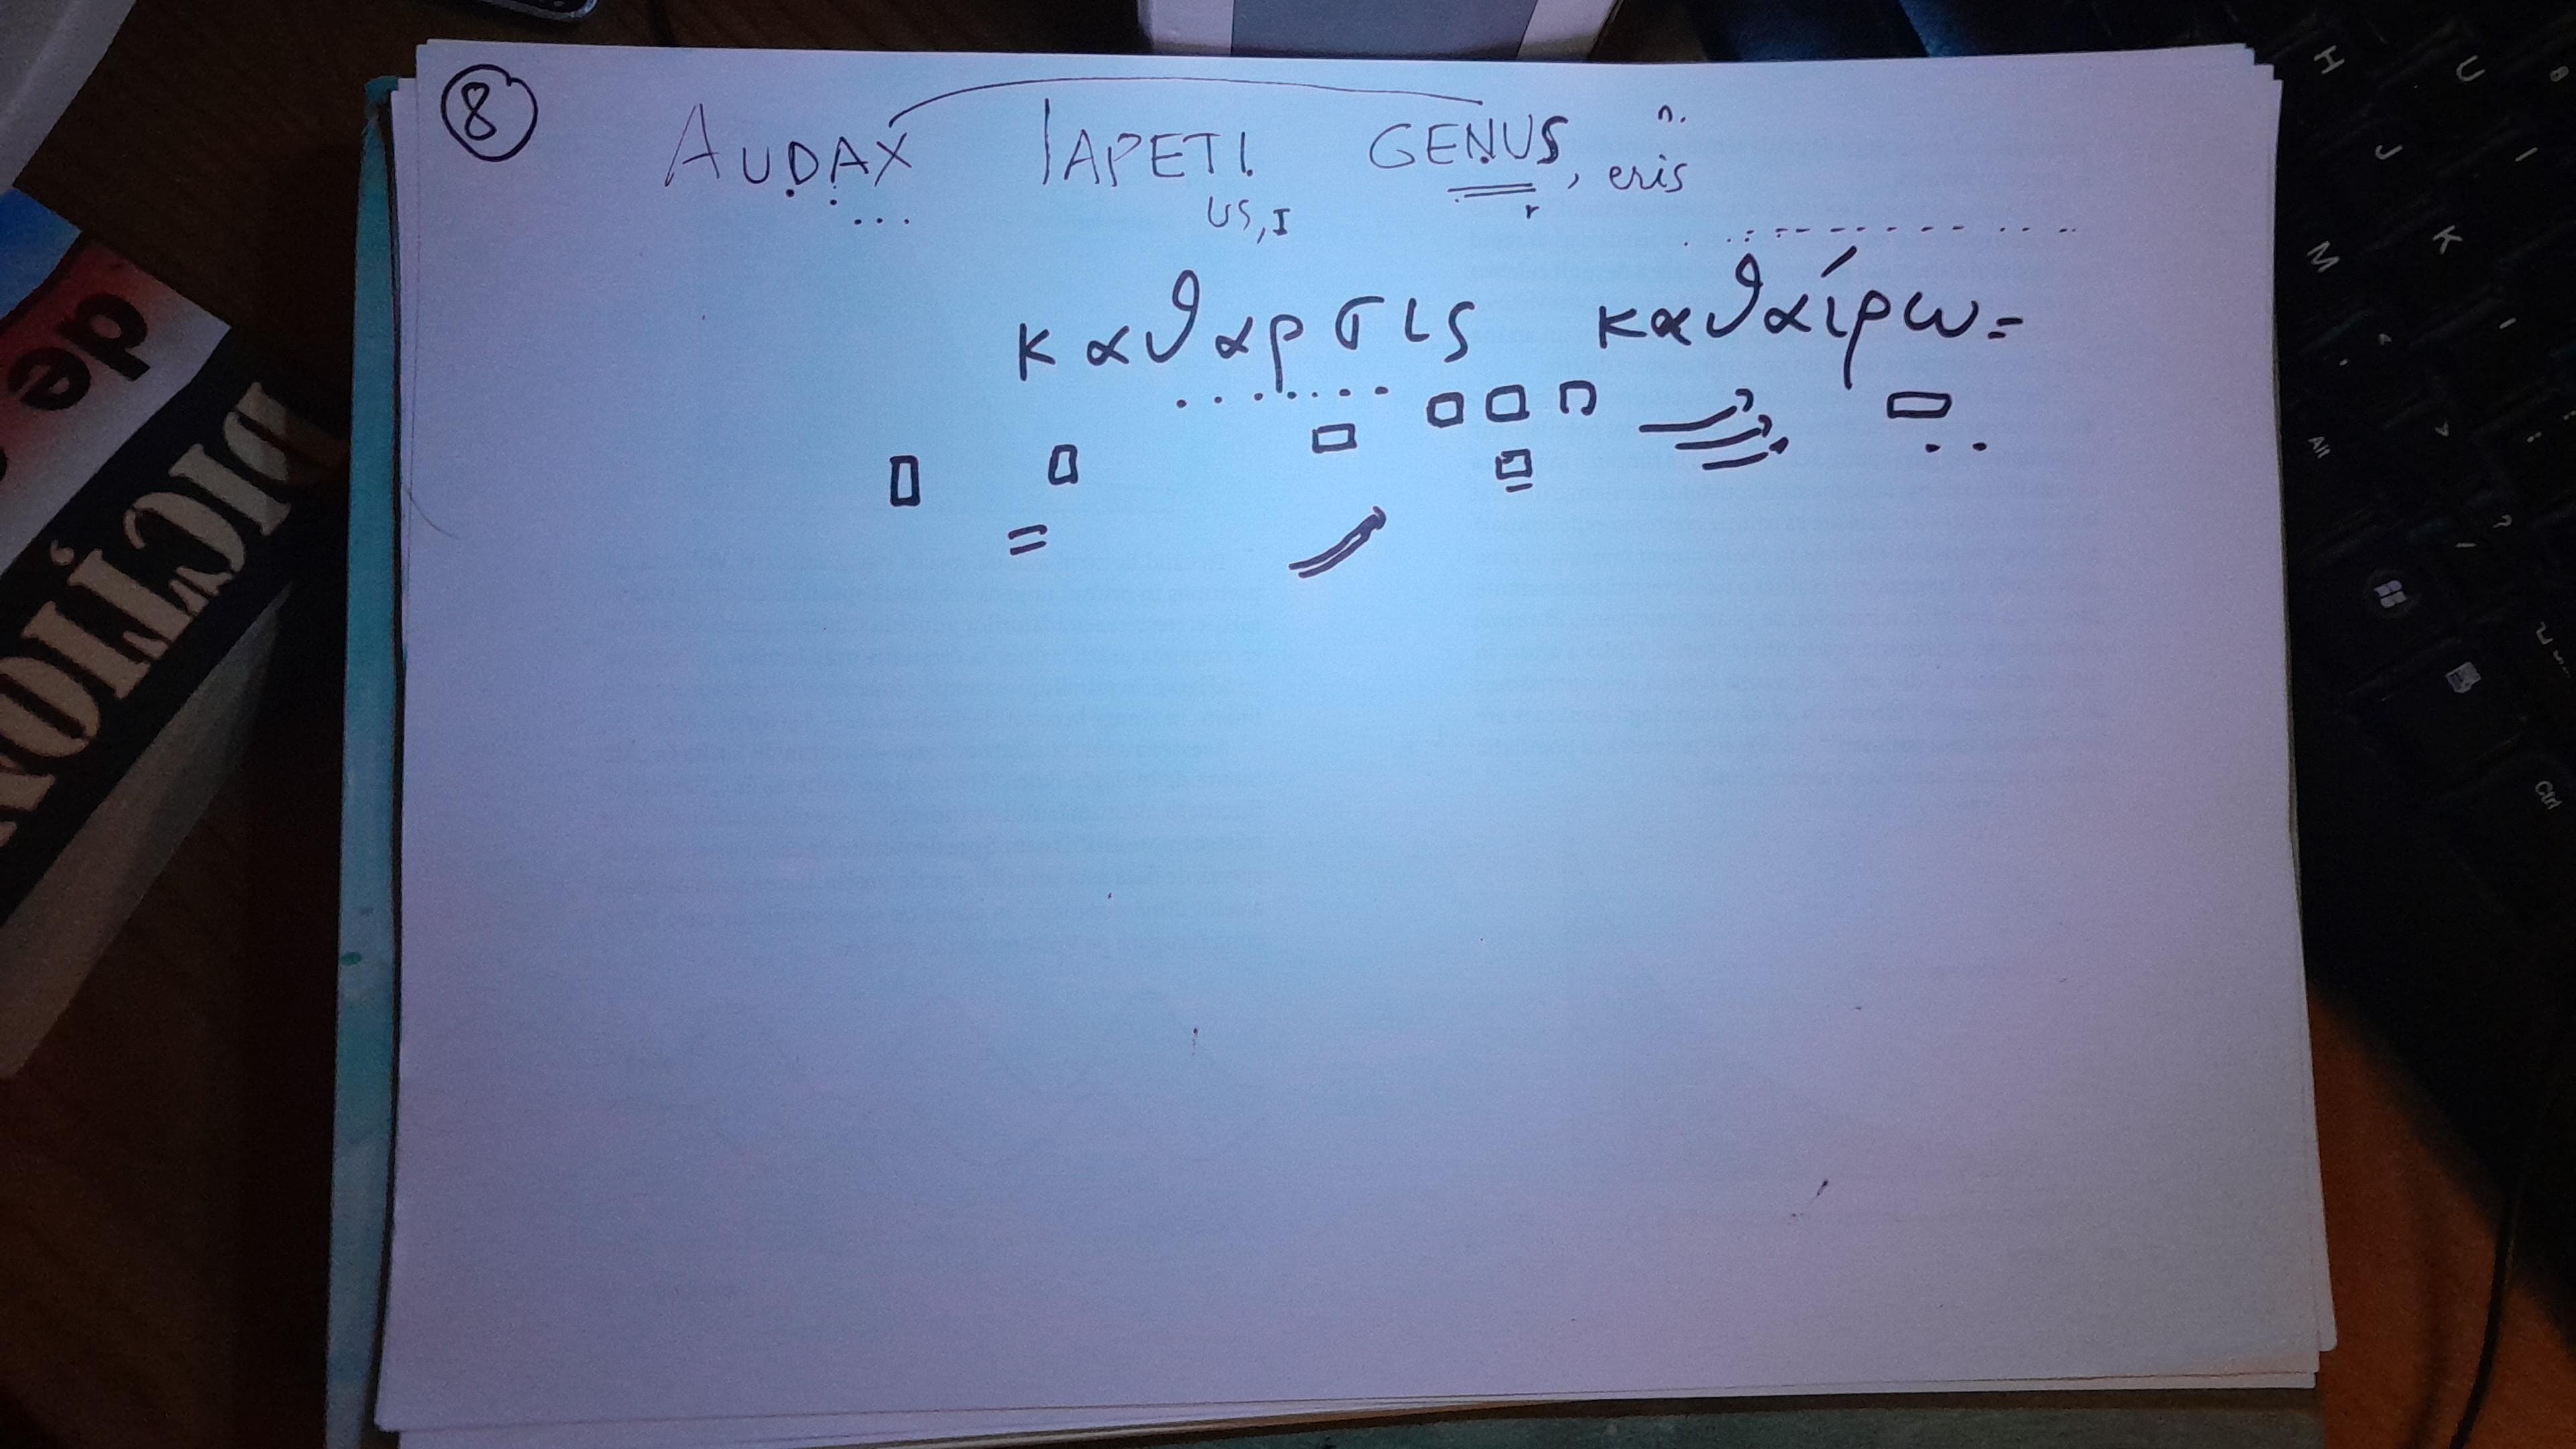 8
AUDAX IAPETI GENUS, eris n.
US, I r
καθαρσις καθαίρω =
de
DICȚION
H U 8
J I
M K
All
Ctrl